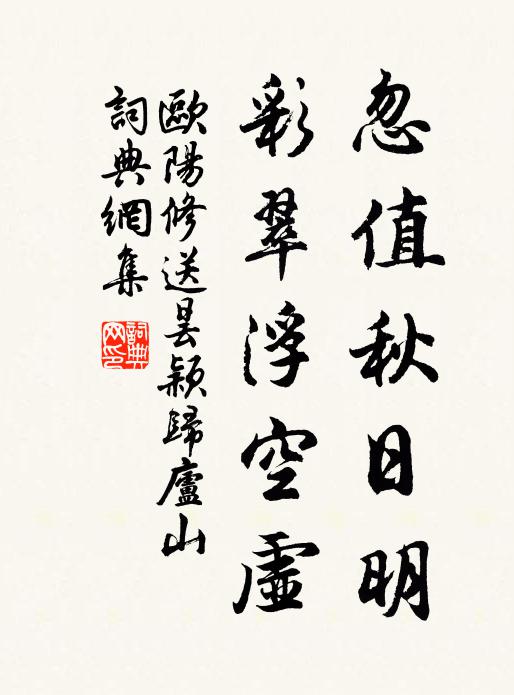 忽值秋日明
彩翠浮空虛
歐陽修送昙颖歸廬山
詞典網集
詞典网印